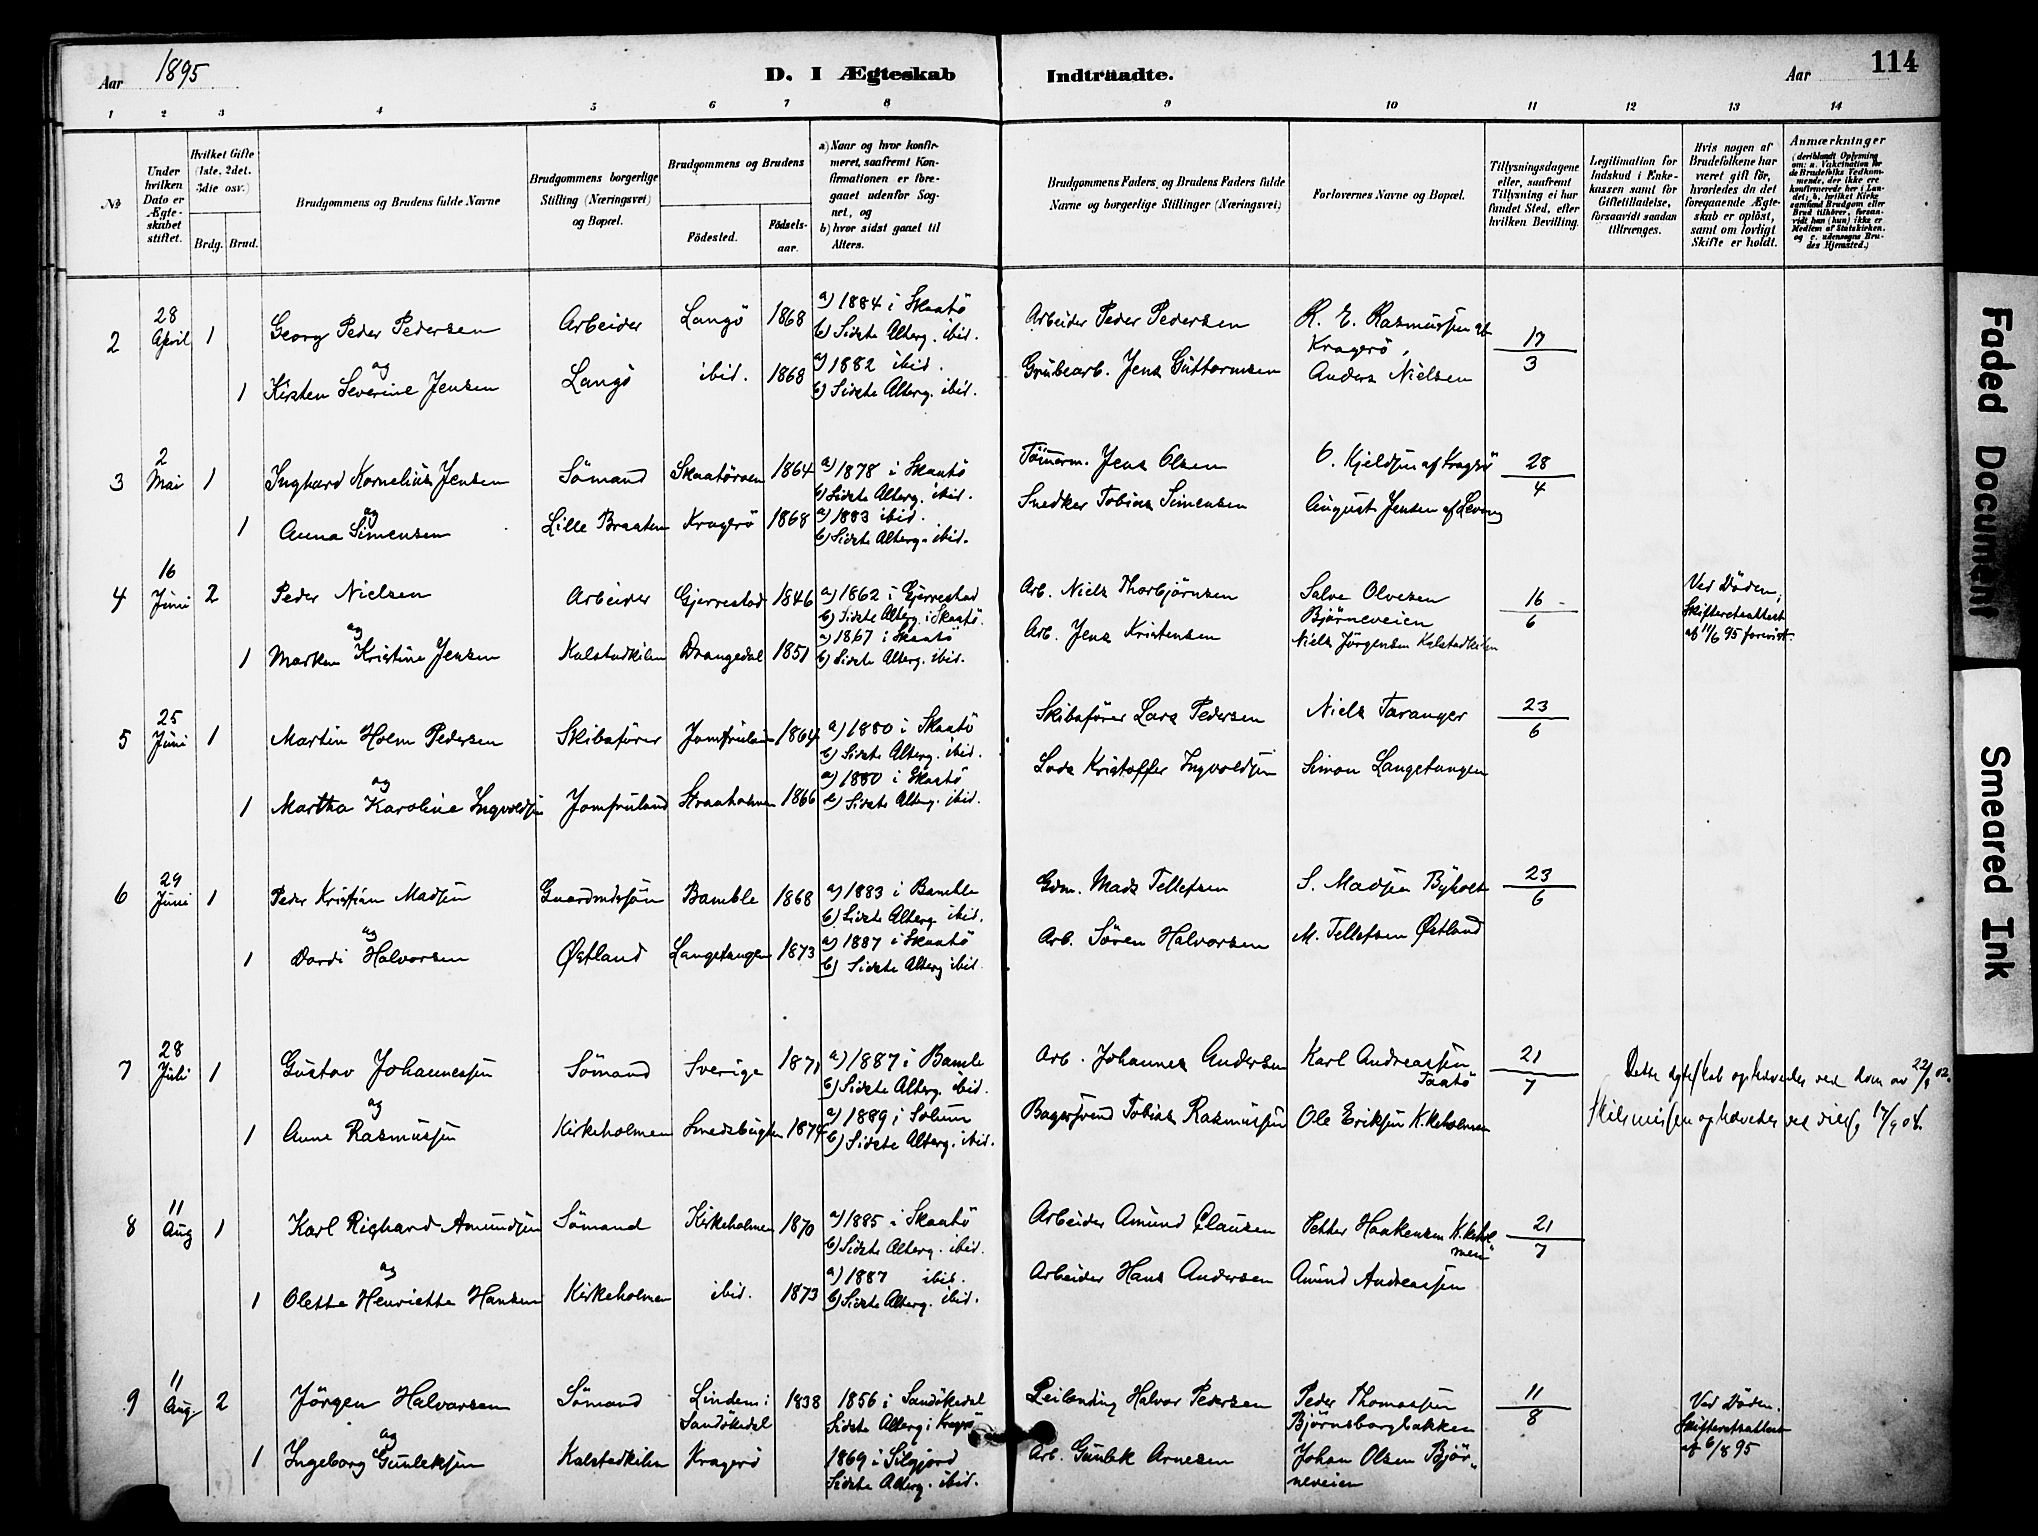 Aar 1895
D. I Ægteskab
Indtraadte.
Aar
114
1 2 3 4 5 6 7 8 9 10 11 12 13 14
No
Under hvilken Dato er Ægteskabet stiftet.
Hvilket Gifte (1ste, 2det, 3die osv.)
Brdg. Brud.
Brudgommens og Brudens fulde Navne
Brudgommens borgerlige Stilling (Næringsvei) og Bopæl.
Brudgommens og Brudens
Fødested.
Fødselsaar.
a) Naar og hvor konfirmeret, saafremt Konfirmationen er foregaaet udenfor Sognet, og
b) hvor sidst gaaet til Alters.
Brudgommens Faders og Brudens Faders fulde Navne og borgerlige Stillinger (Næringsvei)
Forlovernes Navne og Bopæl.
Tillysningsdagene eller, saafremt Tillysning ei har fundet Sted, efter hvilken Bevilling.
Legitimation for Indskud i Enkekassen samt for Giftetilladelse, forsaavidt saadan tiltrænges.
Hvis nogen af Brudefolkene har været gift før, hvorledes da det foregaaende Ægteskab er opløst, samt om lovligt Skifte er holdt.
Anmærkninger
(deriblandt Oplysning om: a. Vakcination for de Brudefolks Vedkommende, der ikke ere konfirmerede her i Landet; b. hvilket Kirkesamfund Brudgom eller Brud tilhører, forsaavidt han (hun) ikke er Medlem af Statskirken, og c. udensogns Brudes Hjemsted.)
2 28 April 1 Georg Peder Pedersen Arbeider Langö 1868 a) 1884 i Skaatö
b) Sidste Alterg. ibid. Arbeider Peder Pedersen R. E. Rasmussen af Kragerö, 17/3
og
1 Kirsten Severine Jensen Langö ibid. 1868 a) 1882 ibid.
b) Sidste Alterg. ibid. Grubearb. Jens Guttormsen Anders Nielsen
3 2 Mai 1 Inghard Kornelius Jensen Sömand Skaatöroen 1864 a) 1878 i Skaatö
b) Sidste Alterg. ibid. Tömmerm. Jens Olsen O. Kjeldsen af Kragerö 28/4
og
1 Anna Simensen Lille Braaten Kragerö 1868 a) 1883 ibid.
b) Sidste Alterg. ibid. Snedker Tobias Simensen August Jensen af Levang
4 16 Juni 2 Peder Nielsen Arbeider Gjerrestad 1846 a) 1862 i Gjerrestad
b) Sidste Alterg. i Skaatö. Arb. Niels Thorbjörnsen Salve Olvesen Björneveien 16/6 Ved Döden; Skifteretsattest af 11/6 95 forevist.
og
1 Maren Kristine Jensen Kalstadkilen Drangedal 1851 a) 1867 i Skaatö
b) Sidste Alterg. ibid. Arb. Jens Kristensen Niels Jörgensen Kalstadkilen
5 25 Juni 1 Martin Holm Pedersen Skibsförer Jomfruland 1864 a) 1880 i Skaatö
b) Sidste Alterg. ibid. Skibsförer Lars Pedersen Niels Taranger 23/6
og
1 Martha Karoline Ingvoldsen Jomfruland Straaholmen 1866 a) 1880 i Skaatö
b) Sidste Alterg. ibid. Lods Kristoffer Ingvoldsen Simon Langetangen
6 29 Juni 1 Peder Kristian Madsen Gaardmdsön Bamble 1868 a) 1883 i Bamble
b) Sidste Alterg. ibid. Gdm. Mads Tellefsen S. Madsen Byholt 23/6
og
1 Dordi Halvorsen Østland Langetangen 1873 a) 1887 i Skaatö
b) Sidste Alterg ibid. Arb. Sören Halvorsen M. Tellefsen Østland
7 28 Juli 1 Gustav Johannessen Sömand Sverige 1871 a) 1887 i Bamble
b) Sidste Alterg. ibid. Arb. Johannes Andersen Karl Andreassen Taatö 21/7 Dette egteskab ophævedes ved dom av 22/ 02.
og
1 Anne Rasmussen Kirkeholmen Smedsbugten 1874 a) 1889 i Solum
b) Sidste Alterg. ibid. Bagersvend Tobias Rasmussen Ole Eriksen K.keholmen Skilsmissen ophævedes ved 17/9 04.
8 11 Aug 1 Karl Richard Amundsen Sömand Kirkeholmen 1870 a) 1885 i Skaatö
b) Sidste Alterg. ibid. Arbeider Amund Clausen Petter Haakensen K.keholmen 21/7
og
1 Olette Henriette Hansen Kirkeholmen ibid. 1873 a) 1887 ibid.
b) Sidste Alterg. ibid. Arbeider Hans Andersen Amund Andreassen
9 11 Aug. 2 Jörgen Halvorsen Sömand Lindem i Sandökedal 1838 1856 i Sandökedal
Sidste Alterg i Kragerö Leilending Halvor Pedersen Peder Thomassen Björnsborgbakken 11/8 Ved Döden. Skifteretsattest af 6/8 95
og
1 Ingeborg Gunleksen Kalstadkilen Kragerö 1869 i Silgjord
Sidste Alterg. ibid. Arb. Gunlek Arnesen Johan Olsen Björneveien
Faded Document
Smeared Ink